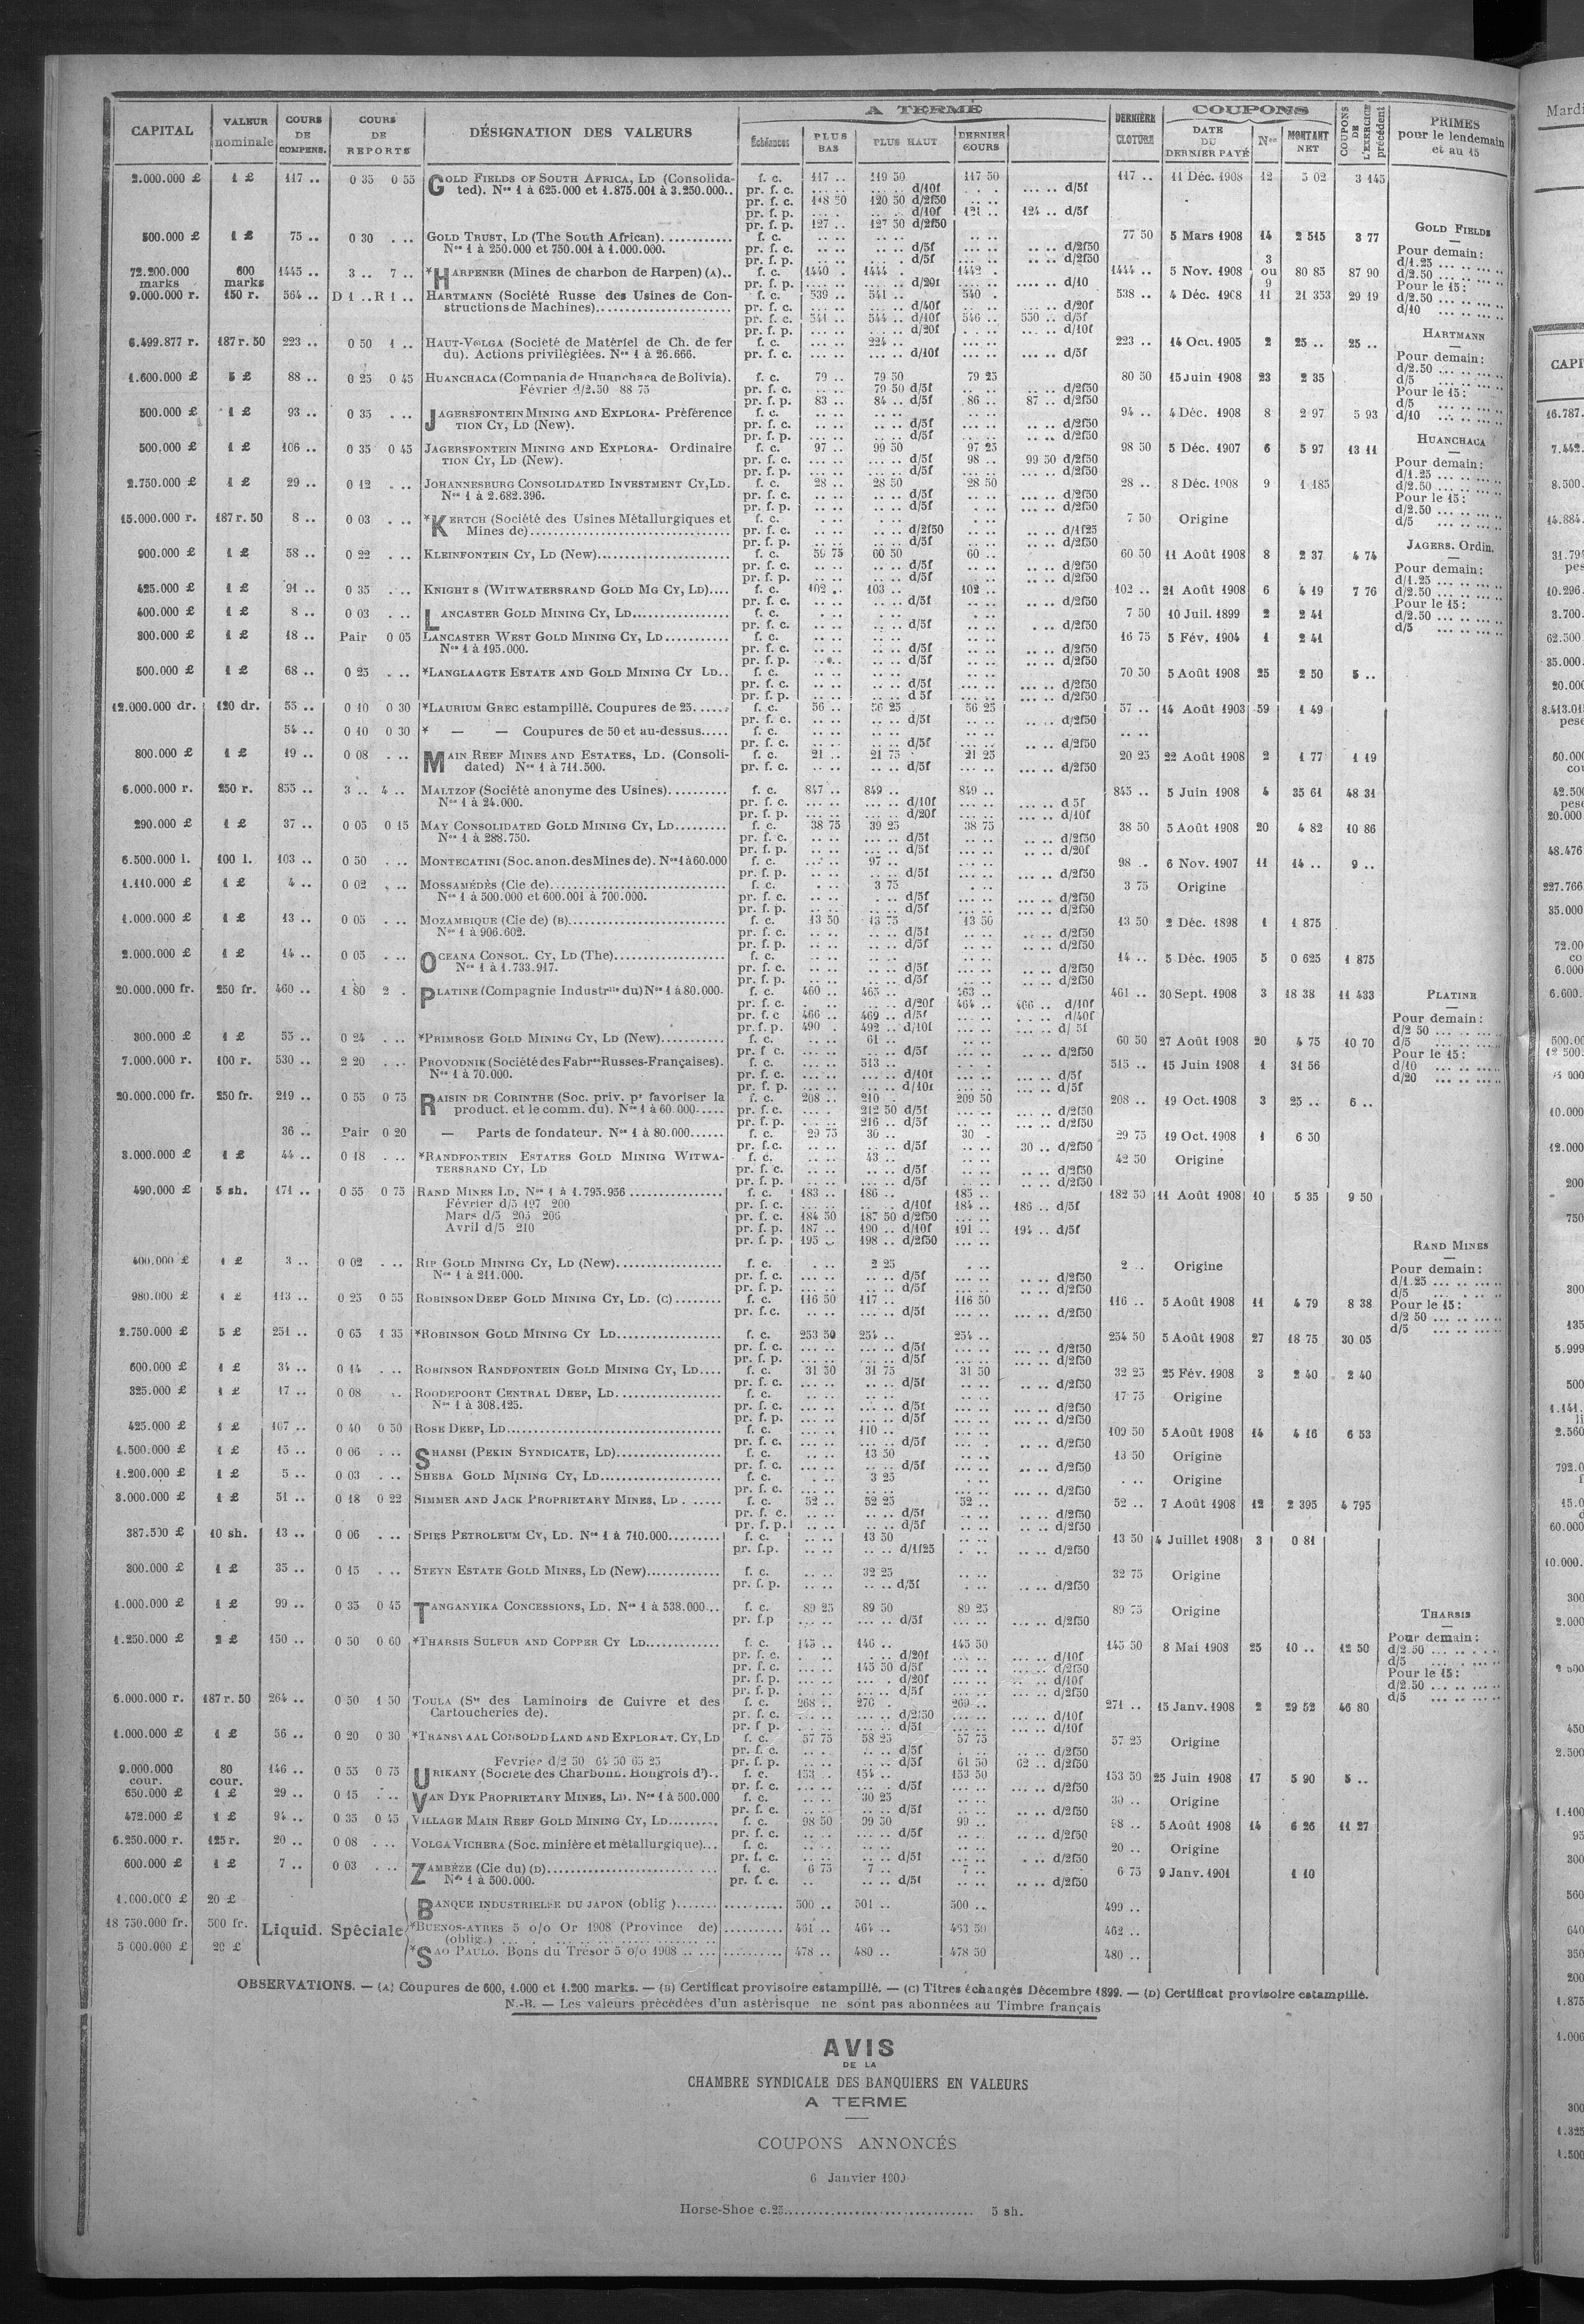 CAPITAL | VALEUR nominale | COURS DE COMPENS. | COURS DE REPORTS | DÉSIGNATION DES VALEURS | A TERME | Échéances | PLUS BAS | PLUS HAUT | DERNIER COURS | DERNIÈRE CLOTURE | COUPONS | DATE DU DERNIER PAYÉ | Nos | MONTANT NET | COUPONS DE L'EXERCICE précédent | PRIMES pour le lendemain et au 15
2.000.000 £ 1 £ 117 .. 0 35 0 55 GOLD FIELDS OF SOUTH AFRICA, LD (Consolida- f. c. 117 .. 119 50 117 50 117 .. 11 Déc. 1908 12 5 02 3 145
ted). Nos 1 à 625.000 et 1.875.001 à 3.250.000.. pr. f. c. d/10f d/5f
pr. f. c. 118 50 120 50 d/2f50
pr. f. p. d/10f 121 .. 124 .. d/5f
pr. f. p. 127 .. 127 50 d/2f50
500.000 £ 1 £ 75 .. 0 30 GOLD TRUST, LD (The South African) f. c. 77 50 5 Mars 1908 14 2 515 3 77
Nos 1 à 250.000 et 750.001 à 1.000.000. pr. f. c. d/5f d/2f50
pr. f. p. d/5f d/2f50
72.200.000 marks 600 marks 1445 .. 3 .. 7 .. *HARPENER (Mines de charbon de Harpen) (A).. f. c. 1440 . 1444 . 1442 . 1444 .. 5 Nov. 1908 3 ou 9 80 85 87 90
pr. f. p. d/20f d/10
9.000.000 r. 150 r. 564 .. D 1 .. R 1 .. HARTMANN (Société Russe des Usines de Con- f. c. 539 .. 541 .. 540 . 538 .. 4 Déc. 1908 11 21 353 29 19
structions de Machines) pr. f. c. d/40f d/20f
pr. f. c. 541 .. 544 .. d/10f 546 .. 550 .. d/5f
pr. f. p. d/20f d/10f
6.499.877 r. 187 r. 50 223 .. 0 50 1 .. HAUT-VOLGA (Société de Matériel de Ch. de fer f. c. 224 .. 223 .. 14 Oct. 1905 2 25 .. 25 ..
du). Actions privilégiées. Nos 1 à 26.666. pr. f. c. d/10f d/5f
1.600.000 £ 5 £ 88 .. 0 25 0 45 HUANCHACA (Compania de Huanchaca de Bolivia). f. c. 79 .. 79 50 79 25 80 50 15 Juin 1908 23 2 35
Février d/2.50 88 75 pr. f. c. 79 50 d/5f d/2f50
pr. f. p. 83 .. 84 .. d/5f 86 .. 87 .. d/2f50
500.000 £ 1 £ 93 .. 0 35 JAGERSFONTEIN MINING AND EXPLORA- Préférence f. c. 94 .. 4 Déc. 1908 8 2 97 5 93
TION CY, LD (New). pr. f. c. d/5f d/2f50
pr. f. p. d/5f d/2f50
500.000 £ 1 £ 106 .. 0 35 0 45 JAGERSFONTEIN MINING AND EXPLORA- Ordinaire f. c. 97 .. 99 50 97 25 98 50 5 Déc. 1907 6 5 97 13 11
TION CY, LD (New). pr. f. c. d/5f 98 .. 99 50 d/2f50
pr. f. p. d/5f d/2f50
2.750.000 £ 1 £ 29 .. 0 12 JOHANNESBURG CONSOLIDATED INVESTMENT CY, LD. f. c. 28 .. 28 50 28 50 28 .. 8 Déc. 1908 9 1 185
Nos 1 à 2.682.396. pr. f. c. d/5f d/2f50
pr. f. p. d/5f d/2f50
15.000.000 r. 187 r. 50 8 .. 0 03 *KERTCH (Société des Usines Métallurgiques et f. c. 7 50 Origine
Mines de) pr. f. c. d/2f50 d/1f25
pr. f. p. d/5f d/2f50
900.000 £ 1 £ 58 .. 0 22 KLEINFONTEIN CY, LD (New) f. c. 59 75 60 50 60 .. 60 50 11 Août 1908 8 2 37 4 74
pr. f. c. d/5f d/2f50
pr. f. p. d/5f d/2f50
425.000 £ 1 £ 91 .. 0 35 KNIGHT S (WITWATERSRAND GOLD MG CY, LD) f. c. 102 .. 103 .. 102 .. 102 .. 21 Août 1908 6 4 19 7 76
pr. f. c. d/5f d/2f50
400.000 £ 1 £ 8 .. 0 03 LANCASTER GOLD MINING CY, LD f. c. 7 50 10 Juil. 1899 2 2 41
pr. f. c. d/5f d/2f50
300.000 £ 1 £ 18 .. Pair 0 05 LANCASTER WEST GOLD MINING CY, LD f. c. 16 75 5 Fév. 1904 1 2 41
Nos 1 à 195.000. pr. f. c. d/5f d/2f50
pr. f. p. d/5f d/2f50
500.000 £ 1 £ 68 .. 0 25 *LANGLAAGTE ESTATE AND GOLD MINING CY LD.. f. c. 70 50 5 Août 1908 25 2 50 5 ..
pr. f. c. d/5f d/2f50
pr. f. p. d 5f d/2f50
12.000.000 dr. 120 dr. 55 .. 0 10 0 30 *LAURIUM GREC estampillé. Coupures de 25 f. c. 56 .. 56 25 56 25 57 .. 14 Août 1903 59 1 49
pr. f. c. d/5f d/2f50
54 .. 0 10 0 30 * — — Coupures de 50 et au-dessus f. c.
pr. f. c. d/5f d/2f50
800.000 £ 1 £ 19 .. 0 08 MAIN REEF MINES AND ESTATES, LD. (Consoli- f. c. 21 .. 21 75 21 25 20 25 22 Août 1908 2 1 77 1 19
dated) Nos 1 à 711.500. pr. f. c. d/5f d/2f50
6.000.000 r. 250 r. 855 .. 3 .. 4 .. MALTZOF (Société anonyme des Usines) f. c. 847 .. 849 .. 849 .. 845 .. 5 Juin 1908 4 35 61 48 31
Nos 1 à 24.000. pr. f. c. d/10f d 5f
pr. f. p. d/20f d/10f
290.000 £ 1 £ 37 .. 0 05 0 15 MAY CONSOLIDATED GOLD MINING CY, LD f. c. 38 75 39 25 38 75 38 50 5 Août 1908 20 4 82 10 86
Nos 1 à 288.750. pr. f. c. d/5f d/2f50
pr. f. p. d/5f d/20f
6.500.000 l. 100 l. 103 .. 0 50 MONTECATINI (Soc. anon. des Mines de). Nos 1 à 60.000 f. c. 97 .. 98 .. 6 Nov. 1907 11 14 .. 9 ..
pr. f. p. d/5f d/2f50
1.110.000 £ 1 £ 4 .. 0 02 MOSSAMÉDÈS (Cie de) f. c. 3 75 3 75 Origine
Nos 1 à 500.000 et 600.001 à 700.000. pr. f. c. d/5f d/2f50
pr. f. p. d/5f d/2f50
1.000.000 £ 1 £ 13 .. 0 05 MOZAMBIQUE (Cie de) (B) f. c. 13 50 13 75 13 50 13 50 2 Déc. 1898 1 1 875
Nos 1 à 906.602. pr. f. c. d/5f d/2f50
pr. f. p. d/5f d/2f50
2.000.000 £ 1 £ 14 .. 0 05 OCEANA CONSOL. CY, LD (The) f. c. 14 .. 5 Déc. 1905 5 0 625 1 875
Nos 1 à 1.733.917. pr. f. c. d/5f d/2f50
pr. f. p. d/5f d/2f50
20.000.000 fr. 250 fr. 460 .. 1 80 2 . PLATINE (Compagnie Industrlle du) Nos 1 à 80.000. f. c. 460 .. 465 .. 463 .. 461 .. 30 Sept. 1908 3 18 38 11 433
pr. f. c. d/20f 464 .. 466 .. d/10f
pr. f. c 466 .. 469 .. d/5f d/40f
pr. f. p. 490 . 492 .. d/10f d/ 5f
300.000 £ 1 £ 55 .. 0 24 *PRIMROSE GOLD MINING CY, LD (New) f. c. 61 .. 60 50 27 Août 1908 20 4 75 10 70
pr. f. c. d/5f d/2f50
7.000.000 r. 100 r. 530 .. 2 20 PROVODNIK (Société des Fabres Russes-Françaises). f. c. 513 .. 515 .. 15 Juin 1908 1 31 56
Nos 1 à 70.000. pr. f. c. d/10f d/5f
pr. f. p. d/10f d/5f
20.000.000 fr. 250 fr. 219 .. 0 55 0 75 RAISIN DE CORINTHE (Soc. priv. pr favoriser la f. c. 208 .. 210 . 209 50 208 .. 19 Oct. 1908 3 25 .. 6 ..
product. et le comm. du). Nos 1 à 60.000 pr. f. c. 212 50 d/5f d/2f50
pr. f. p. 216 .. d/5f d/2f50
36 .. Pair 0 20 — Parts de fondateur. Nos 1 à 80.000 f. c. 29 75 30 .. 30 . 29 75 19 Oct. 1908 1 6 50
pr. f. c. d/5f 30 .. d/2f50
3.000.000 £ 1 £ 44 .. 0 18 *RANDFONTEIN ESTATES GOLD MINING WITWA- f. c. 43 .. 42 50 Origine
TERSRAND CY, LD pr. f. c. d/5f d/2f50
pr. f. p. d/5f d/2f50
490.000 £ 5 sh. 171 .. 0 55 0 75 RAND MINES LD. Nos 1 à 1.795.956 f. c. 183 .. 186 .. 185 .. 182 50 11 Août 1908 10 5 35 9 50
Février d/5 197 200 pr. f. c. d/10f 184 .. 186 .. d/5f
Mars d/5 205 206 pr. f. c. 184 50 187 50 d/2f50
Avril d/5 210 pr. f. p. 187 .. 190 .. d/10f 191 .. 194 .. d/5f
pr. f. p. 195 .. 198 .. d/2f50
400.000 £ 1 £ 3 .. 0 02 RIP GOLD MINING CY, LD (New) f. c. 2 25 2 .. Origine
Nos 1 à 211.000. pr. f. c. d/5f d/2f50
pr. f. p. d/5f d/2f50
980.000 £ 1 £ 113 .. 0 25 0 55 ROBINSON DEEP GOLD MINING CY, LD. (C) f. c. 116 50 117 .. 116 50 116 .. 5 Août 1908 11 4 79 8 38
pr. f. c. d/5f d/2f50
2.750.000 £ 5 £ 251 .. 0 65 1 35 *ROBINSON GOLD MINING CY LD f. c. 253 50 254 .. 254 .. 254 50 5 Août 1908 27 18 75 30 05
pr. f. c. d/5f d/2f50
pr. f. p. d/5f d/2f50
600.000 £ 1 £ 34 .. 0 14 ROBINSON RANDFONTEIN GOLD MINING CY, LD f. c. 31 50 31 75 31 50 32 25 25 Fév. 1908 3 2 40 2 40
pr. f. c. d/5f d/2f50
325.000 £ 1 £ 17 .. 0 08 ROODEPOORT CENTRAL DEEP, LD f. c. 17 75 Origine
Nos 1 à 308.125. pr. f. c. d/5f d/2f50
pr. f. p. d/5f d/2f50
425.000 £ 1 £ 107 .. 0 40 0 50 ROSE DEEP, LD f. c. 110 .. 109 50 5 Août 1908 14 4 16 6 53
pr. f. c. d/5f d/2f50
1.500.000 £ 1 £ 15 .. 0 06 SHANSI (PEKIN SYNDICATE, LD) f. c. 13 50 13 50 Origine
pr. f. c. d/5f d/2f50
1.200.000 £ 1 £ 5 .. 0 03 SHEBA GOLD MINING CY, LD f. c. 3 25 Origine
pr. f. c. d/2f50
3.000.000 £ 1 £ 51 .. 0 18 0 22 SIMMER AND JACK PROPRIETARY MINES, LD f. c. 52 .. 52 25 52 .. 52 .. 7 Août 1908 12 2 395 4 795
pr. f. c. d/5f d/2f50
pr. f. p. d/5f d/2f50
387.500 £ 10 sh. 13 .. 0 06 SPIES PETROLEUM CY, LD. Nos 1 à 710.000 f. c. 13 50 13 50 4 Juillet 1908 3 0 81
pr. f.p. d/1f25 d/2f50
300.000 £ 1 £ 35 .. 0 15 STEYN ESTATE GOLD MINES, LD (New) f. c. 32 25 32 75 Origine
pr. f. p. d/5f d/2f50
1.000.000 £ 1 £ 99 .. 0 35 0 45 TANGANYIKA CONCESSIONS, LD. Nos 1 à 538.000 f. c. 89 25 89 50 89 25 89 75 Origine
pr. f.p d/5f d/2f50
1.250.000 £ 2 £ 150 .. 0 50 0 60 *THARSIS SULFUR AND COPPER CY LD f. c. 145 .. 146 .. 145 50 145 50 8 Mai 1908 25 10 .. 12 50
pr. f. c. d/20f d/10f
pr. f. c. 145 50 d/5f d/2f50
pr. f. p. d/20f d/10f
pr. f. p. d/5f d/2f50
6.000.000 r. 187 r. 50 264 .. 0 50 1 50 TOULA (Sté des Laminoirs de Cuivre et des f. c. 268 .. 270 . 269 .. 271 .. 15 Janv. 1908 2 29 52 46 80
Cartoucheries de). pr. f. c. d/2f50 d/10f
pr. f p. d/5f d/10f
1.000.000 £ 1 £ 56 .. 0 20 0 30 *TRANSVAAL CONSOLID LAND AND EXPLORAT. CY, LD f. c. 57 75 58 25 57 75 57 25 Origine
pr. f. c. d/5f d/2f50
Février d/2 50 64 50 65 25 pr. f. p. d/5f 61 50 62 .. d/2f50
9.000.000 cour. 80 cour. 146 .. 0 55 0 75 URIKANY (Société des Charbonn. Hongrois d').. f. c. 153 .. 154 .. 153 50 153 50 25 Juin 1908 17 5 90 5 ..
pr. f. c. d/5f d/2f50
650.000 £ 1 £ 29 .. 0 15 VAN DYK PROPRIETARY MINES, LD. Nos 1 à 500.000 f. c. 30 25 30 .. Origine
pr. f. c. d/5f d/2f50
472.000 £ 1 £ 94 .. 0 35 0 45 VILLAGE MAIN REEF GOLD MINING CY, LD f. c. 98 50 99 50 99 .. 98 .. 5 Août 1908 14 6 26 11 27
pr. f. c. d/5f d/2f50
6.250.000 r. 125 r. 20 .. 0 08 VOLGA VICHERA (Soc. minière et métallurgique) f. c. 20 .. Origine
pr. f. c. d/5f d/2f50
600.000 £ 1 £ 7 .. 0 03 ZAMBÈZE (Cie du) (D) f. c. 6 75 7 .. 7 .. 6 75 9 Janv. 1901 1 10
Nos 1 à 500.000. pr. f. c. d/5f d/2f50
1.000.000 £ 20 £ BANQUE INDUSTRIELLE DU JAPON (oblig ) 500 .. 501 .. 500 .. 499 ..
18 750.000 fr. 500 fr. Liquid. Spéciale *BUENOS-AYRES 5 o/o Or 1908 (Province de) 461 .. 464 .. 463 50 462 ..
(oblig.)
5 000.000 £ 20 £ *SAO PAULO. Bons du Trésor 5 o/o 1908 478 .. 480 .. 478 50 480 ..
GOLD FIELDS
Pour demain :
d/1.25
d/2.50
Pour le 15 :
d/2.50
d/10
HARTMANN
Pour demain :
d/2.50
d/5
Pour le 15 :
d/5
d/10
HUANCHACA
Pour demain :
d/1.25
d/2.50
Pour le 15 :
d/2.50
d/5
JAGERS. Ordin.
Pour demain :
d/1.25
d/2.50
Pour le 15 :
d/2.50
d/5
PLATINE
Pour demain :
d/2 50
d/5
Pour le 15 :
d/10
d/20
RAND MINES
Pour demain :
d/1.25
d/5
Pour le 15 :
d/2 50
d/5
THARSIS
Pour demain :
d/2.50
d/5
Pour le 15 :
d/2.50
d/5
OBSERVATIONS. — (A) Coupures de 600, 1.000 et 1.200 marks. — (B) Certificat provisoire estampillé. — (C) Titres échangés Décembre 1899. — (D) Certificat provisoire estampillé.
N.-B. — Les valeurs précédées d'un astérisque ne sont pas abonnées au Timbre français
AVIS
DE LA
CHAMBRE SYNDICALE DES BANQUIERS EN VALEURS
A TERME
COUPONS ANNONCÉS
6 Janvier 1909
Horse-Shoe c.25 5 sh.
Mardi
CAPI